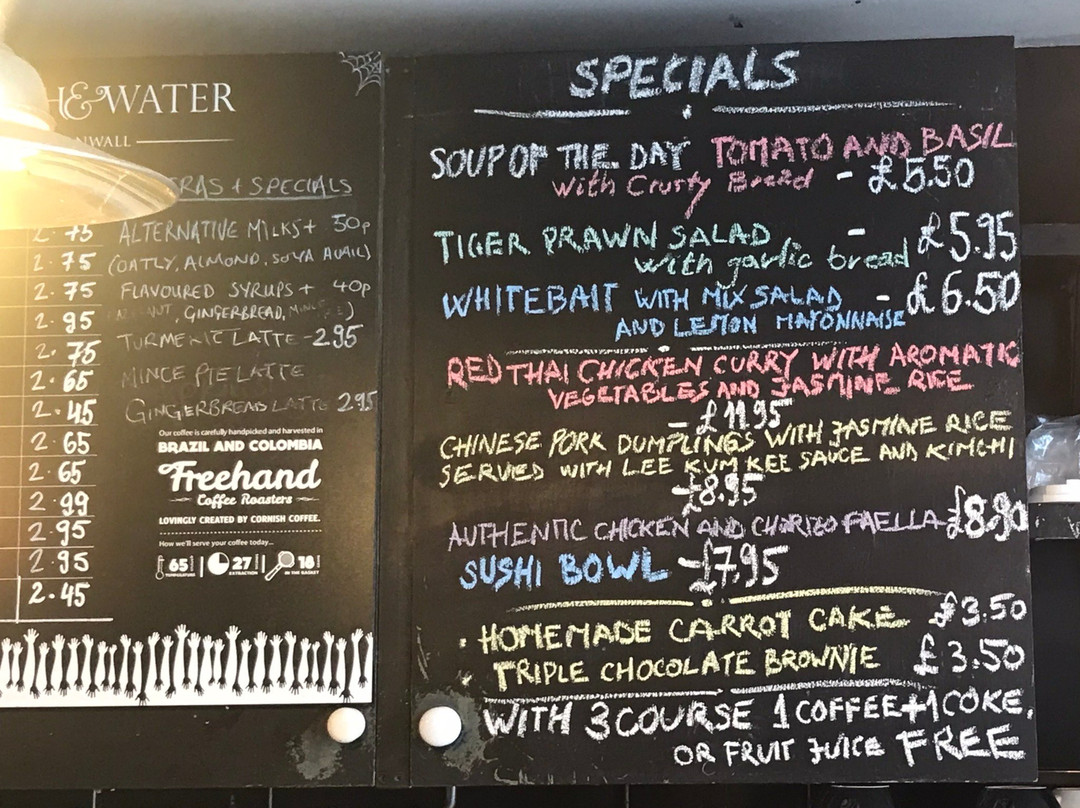 &WATER
NWALL
RAS + SPECIALS
2.75
2.75
2.95
2.75
2.65
2.45
2.65
2.65
2.99
2.95
2.95
2.45
ALTERNATIVE MILKS + 50p
(OATLY, ALMOND, SOYA AVAIL)
FLAVOURED SYRUPS + 40p
GINGERBREAD,
TURMERIC LATTE - 2.95
MINCE PIE LATTE
GINGERBREAD LATTE 2.95
Our coffee is carefully handpicked and harvested in
BRAZIL AND COLOMBIA
Freehand
Coffee Roasters
LOVINGLY CREATED BY CORNISH COFFEE.
How we'll serve your coffee today...
65 27 18
TEMPERATURE EXTRACTION IN THE BASKET
SPECIALS
SOUP OF THE DAY TOMATO AND BASIL
with Crusty Bread - £5.50
TIGER PRAWN SALAD - £5.95
with garlic bread
WHITEBAIT WITH MIX SALAD - £6.50
AND LEMON MAYONNAISE
RED THAI CHICKEN CURRY WITH AROMATIC
VEGETABLES AND JASMINE RICE
- £11.95
CHINESE PORK DUMPLINGS WITH JASMINE RICE
SERVED WITH LEE KUM KEE SAUCE AND KIMCHI
- £8.95
AUTHENTIC CHICKEN AND CHORIZO PAELLA - £8.90
SUSHI BOWL - £7.95
• HOMEMADE CARROT CAKE £3.50
• TRIPLE CHOCOLATE BROWNIE £3.50
WITH 3 COURSE 1 COFFEE + 1 COKE,
OR FRUIT JUICE FREE